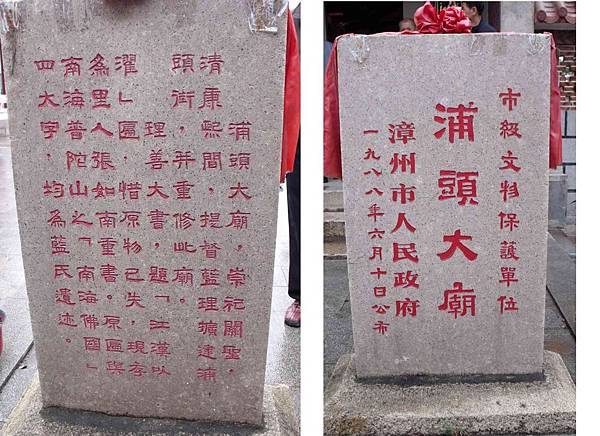 浦頭大廟，崇祀關聖，
清康熙間，提督藍理擴建浦
頭街，并重修此廟。
理善大書，題「江漢以
濯」匾，惜原物已失，現存
為里人張如南重書。原匾與
南海普陀山之「南海佛國」
四大字，均為藍氏遺迹。
市級文物保護單位
浦頭大廟
漳州市人民政府
一九八八年六月十日公布